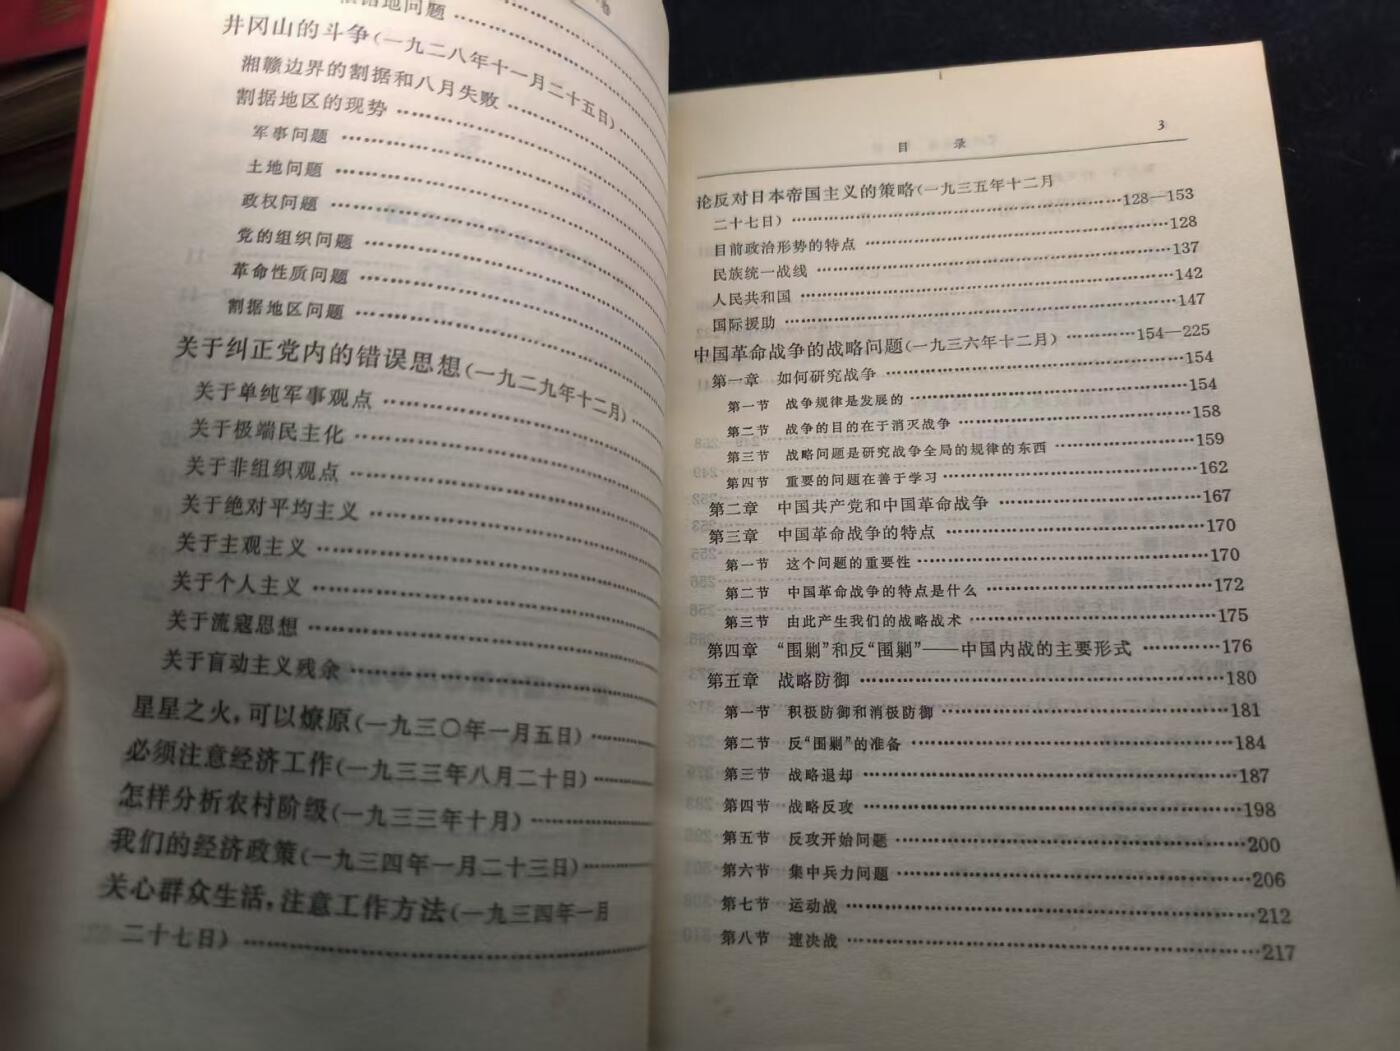 地问题
井冈山的斗争(一九二八年十一月二十五日)
湘赣边界的割据和八月失败
割据地区的现势
军事问题
土地问题
政权问题
党的组织问题
革命性质问题
割据地区问题
关于纠正党内的错误思想(一九二九年十二月)
关于单纯军事观点
关于极端民主化
关于非组织观点
关于绝对平均主义
关于主观主义
关于个人主义
关于流寇思想
关于盲动主义残余
星星之火,可以燎原(一九三〇年一月五日)
必须注意经济工作(一九三三年八月二十日)
怎样分析农村阶级(一九三三年十月)
我们的经济政策(一九三四年一月二十三日)
关心群众生活,注意工作方法(一九三四年一月
二十七日)
目 录 3
论反对日本帝国主义的策略(一九三五年十二月
二十七日)……128—153
目前政治形势的特点……128
民族统一战线……137
人民共和国……142
国际援助……147
中国革命战争的战略问题(一九三六年十二月)……154—225
第一章 如何研究战争……154
第一节 战争规律是发展的……154
第二节 战争的目的在于消灭战争……158
第三节 战略问题是研究战争全局的规律的东西……159
第四节 重要的问题在善于学习……162
第二章 中国共产党和中国革命战争……167
第三章 中国革命战争的特点……170
第一节 这个问题的重要性……170
第二节 中国革命战争的特点是什么……172
第三节 由此产生我们的战略战术……175
第四章 “围剿”和反“围剿”——中国内战的主要形式……176
第五章 战略防御……180
第一节 积极防御和消极防御……181
第二节 反“围剿”的准备……184
第三节 战略退却……187
第四节 战略反攻……198
第五节 反攻开始问题……200
第六节 集中兵力问题……206
第七节 运动战……212
第八节 速决战……217